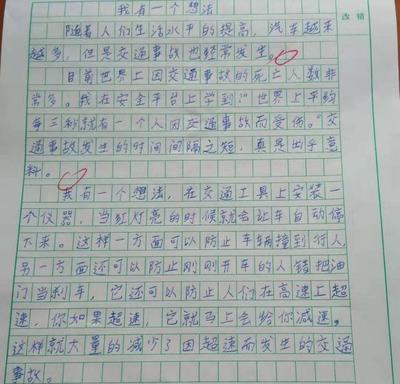 我有一个想法
改错
随着人们生活水平的提高，汽车越来
越多，但是交通事故也经常发生。
目前世界上因交通事故的死亡人数非
常多。我在安全平台上学到“世界上平均
每三秒就有一个人因交通事故而受伤。”交
通事故发生的时间间隔之短，真是出乎意
料。
我有一个想法，在交通工具上安装一
个仪器，当红灯亮的时候就会让车自动停
下来。这样一方面可以防止车辆撞到行人，
另一方面还可以防止刚刚开车的人错把油
门当刹车，它还可以防止人们在高速上超
速，你如果超速，它就马上会给你减速。
这样就大量的减少了因超速而发生的交通
事故。